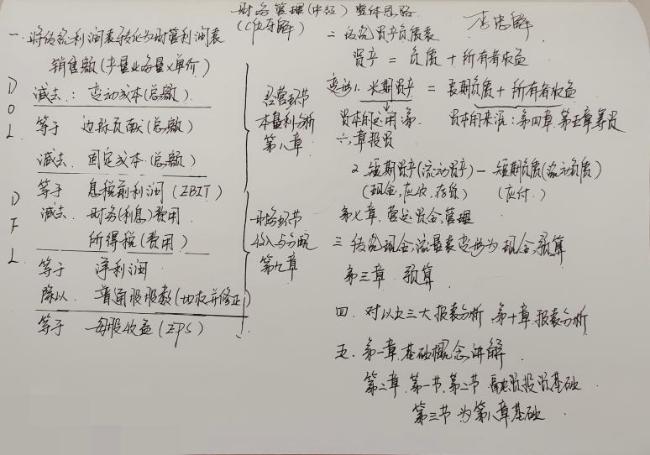 财务管理(中级)整体思路
一. 将传统利润表转化为财管利润表
销售额(产量业务量×单价)
减去: 变动成本(总额)
等于 边际贡献(总额)
减去. 固定成本(总额)
等于 息税前利润(EBIT)
减去. 财务(利息)费用
所得税(费用)
等于 净利润
除以. 普通股股数(加权并修正)
等于 每股收益(EPS)
DOL
DFL
经营环节
本量利分析
第八章
财务环节
收入与分配
第九章
二 传统资产负债表
资产 = 负债 + 所有者权益
变形1. 长期资产 = 长期负债 + 所有者权益
资本的运用:第
六章投资
资本的来源: 第四章.第五章筹资
2. 短期资产(流动资产) - 短期负债(流动负债)
(现金,应收,存货) (应付.)
第七章. 营运资金管理
三 传统现金流量表变形为现金预算
第三章. 预算
四. 对以上三大报表分析.第十章.报表分析
五. 第一章.基础概念讲解
第二章.第一节.第二节 融资投资基础.
第三节为第八章基础.